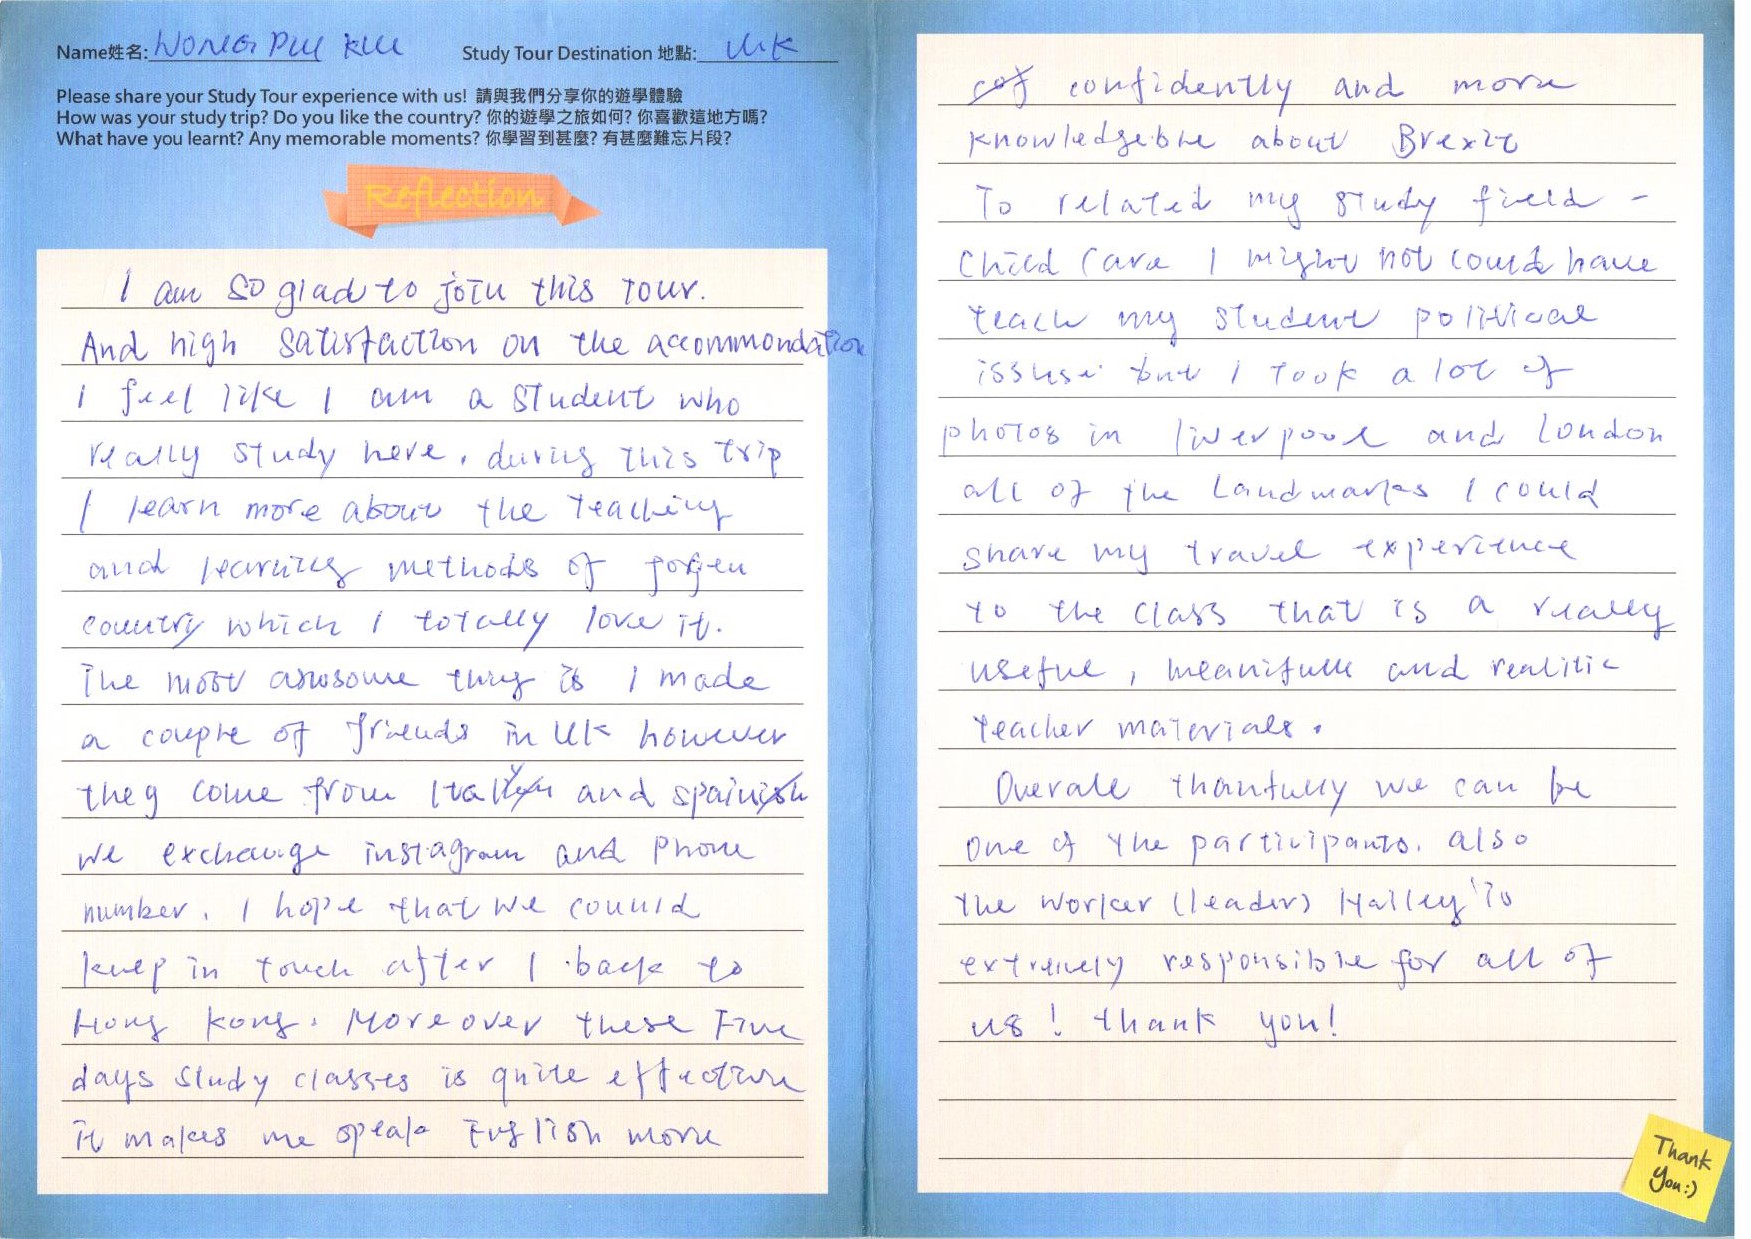 Name姓名: WONG PUI KIU Study Tour Destination 地點: UK
Please share your Study Tour experience with us! 請與我們分享你的遊學體驗
How was your study trip? Do you like the country? 你的遊學之旅如何? 你喜歡這地方嗎?
What have you learnt? Any memorable moments? 你學習到甚麼? 有甚麼難忘片段?
Reflection
I am so glad to join this tour.
And high satisfaction on the accommondation
I feel like I am a student who
really study here, during this trip
I learn more about the teaching
and learning methods of forjen
country which I totally love it.
The most awosome thing is I made
a couple of friends in UK however
they come from Italy and spain
we exchange instagram and phone
number. I hope that we counld
keep in touch after I back to
Hong Kong. Moreover these Five
days study classes is quite effective
it makes me speak English more
confidently and more
knowledgeble about Brexit
To related my study field -
Child Care I might not could have
teach my student political
issuse but I took a lot of
photos in liverpool and London
all of the Landmarks I could
share my travel experience
to the class that is a really
useful, meanifull and realitic
teacher materials.
Overall thankfully we can be
one of the participants. also
the worker (leader) Halley is
extremely responsible for all of
us! thank you!
Thank
You:)